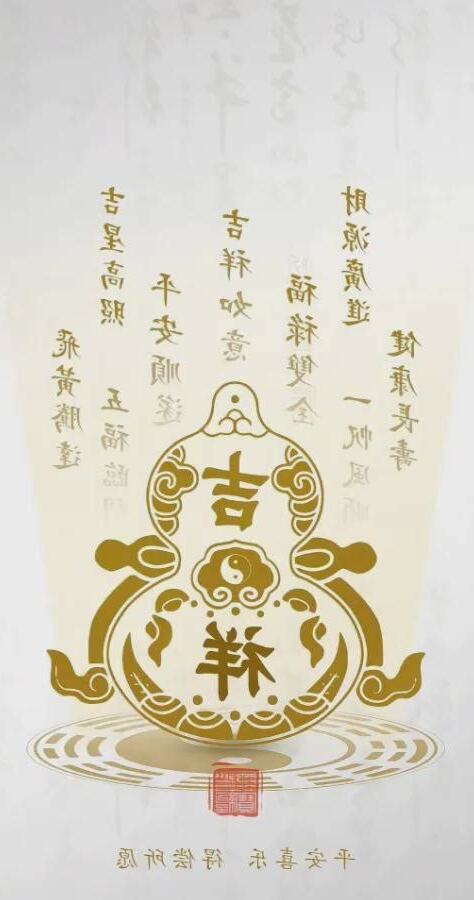 健康長壽
財源廣進
一帆風順
福祿雙全
吉祥如意
平安順遂
吉星高照
五福臨門
飛黃騰達
吉祥
平安喜乐 得偿所愿